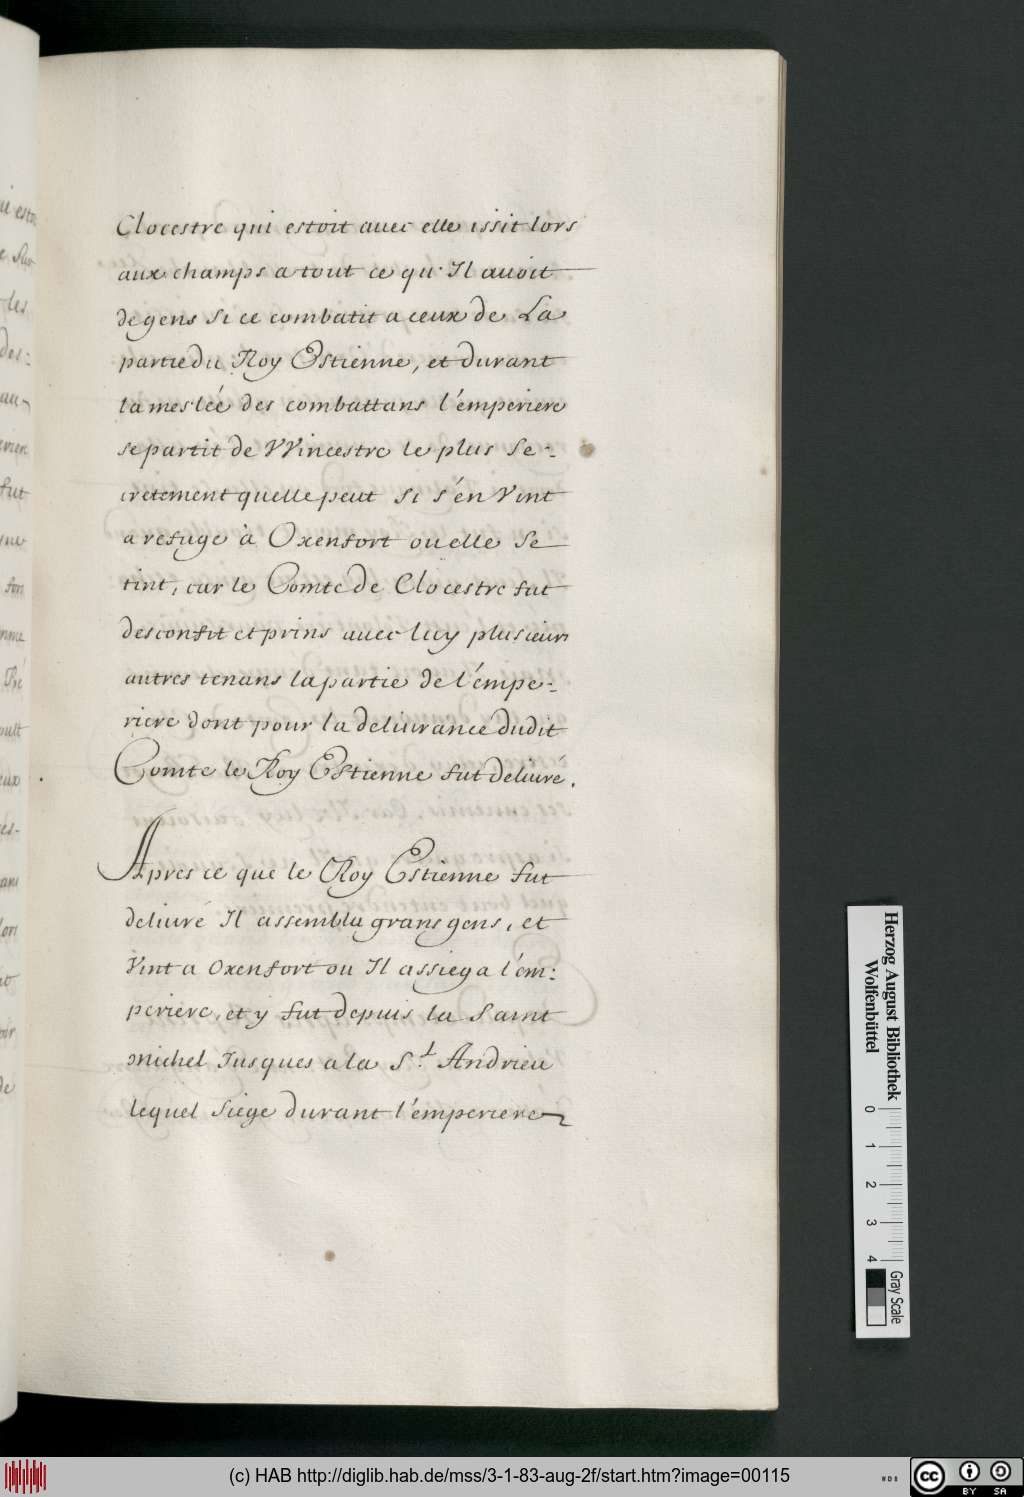 Clocestre qui estoit avec elle issit lors
aux champs a tout ce qu'Il avoit
de gens si ce combatit a ceux de La
partie du Roy Estienne, et durant
la mes'leé des combattans l'émperiere
se partit de VVincestre le plus se-
cretement quelle peut si s'én vint
a refuge à Oxenfort ou elle se
tint, car le Comte de Clocestre fut
desconfit et prins avec luy plusieurs
autres tenans la partie de l'émpe-
riere dont pour la delivrance dudit
Comte le Roy Estienne fut delivré.
Apres ce que le Roy Estienne fut
delivré Il assembla grans gens, et
vint a Oxenfort ou Il assiega l'ém:
periere, et y fut depuis la saint
michel Jusques a la S.t Andrieu
lequel siege durant l'émperiere
Herzog August Bibliothek
Wolfenbüttel
0 1 2 3 4
Gray Scale
(c) HAB http://diglib.hab.de/mss/3-1-83-aug-2f/start.htm?image=00115
WDB
cc BY SA